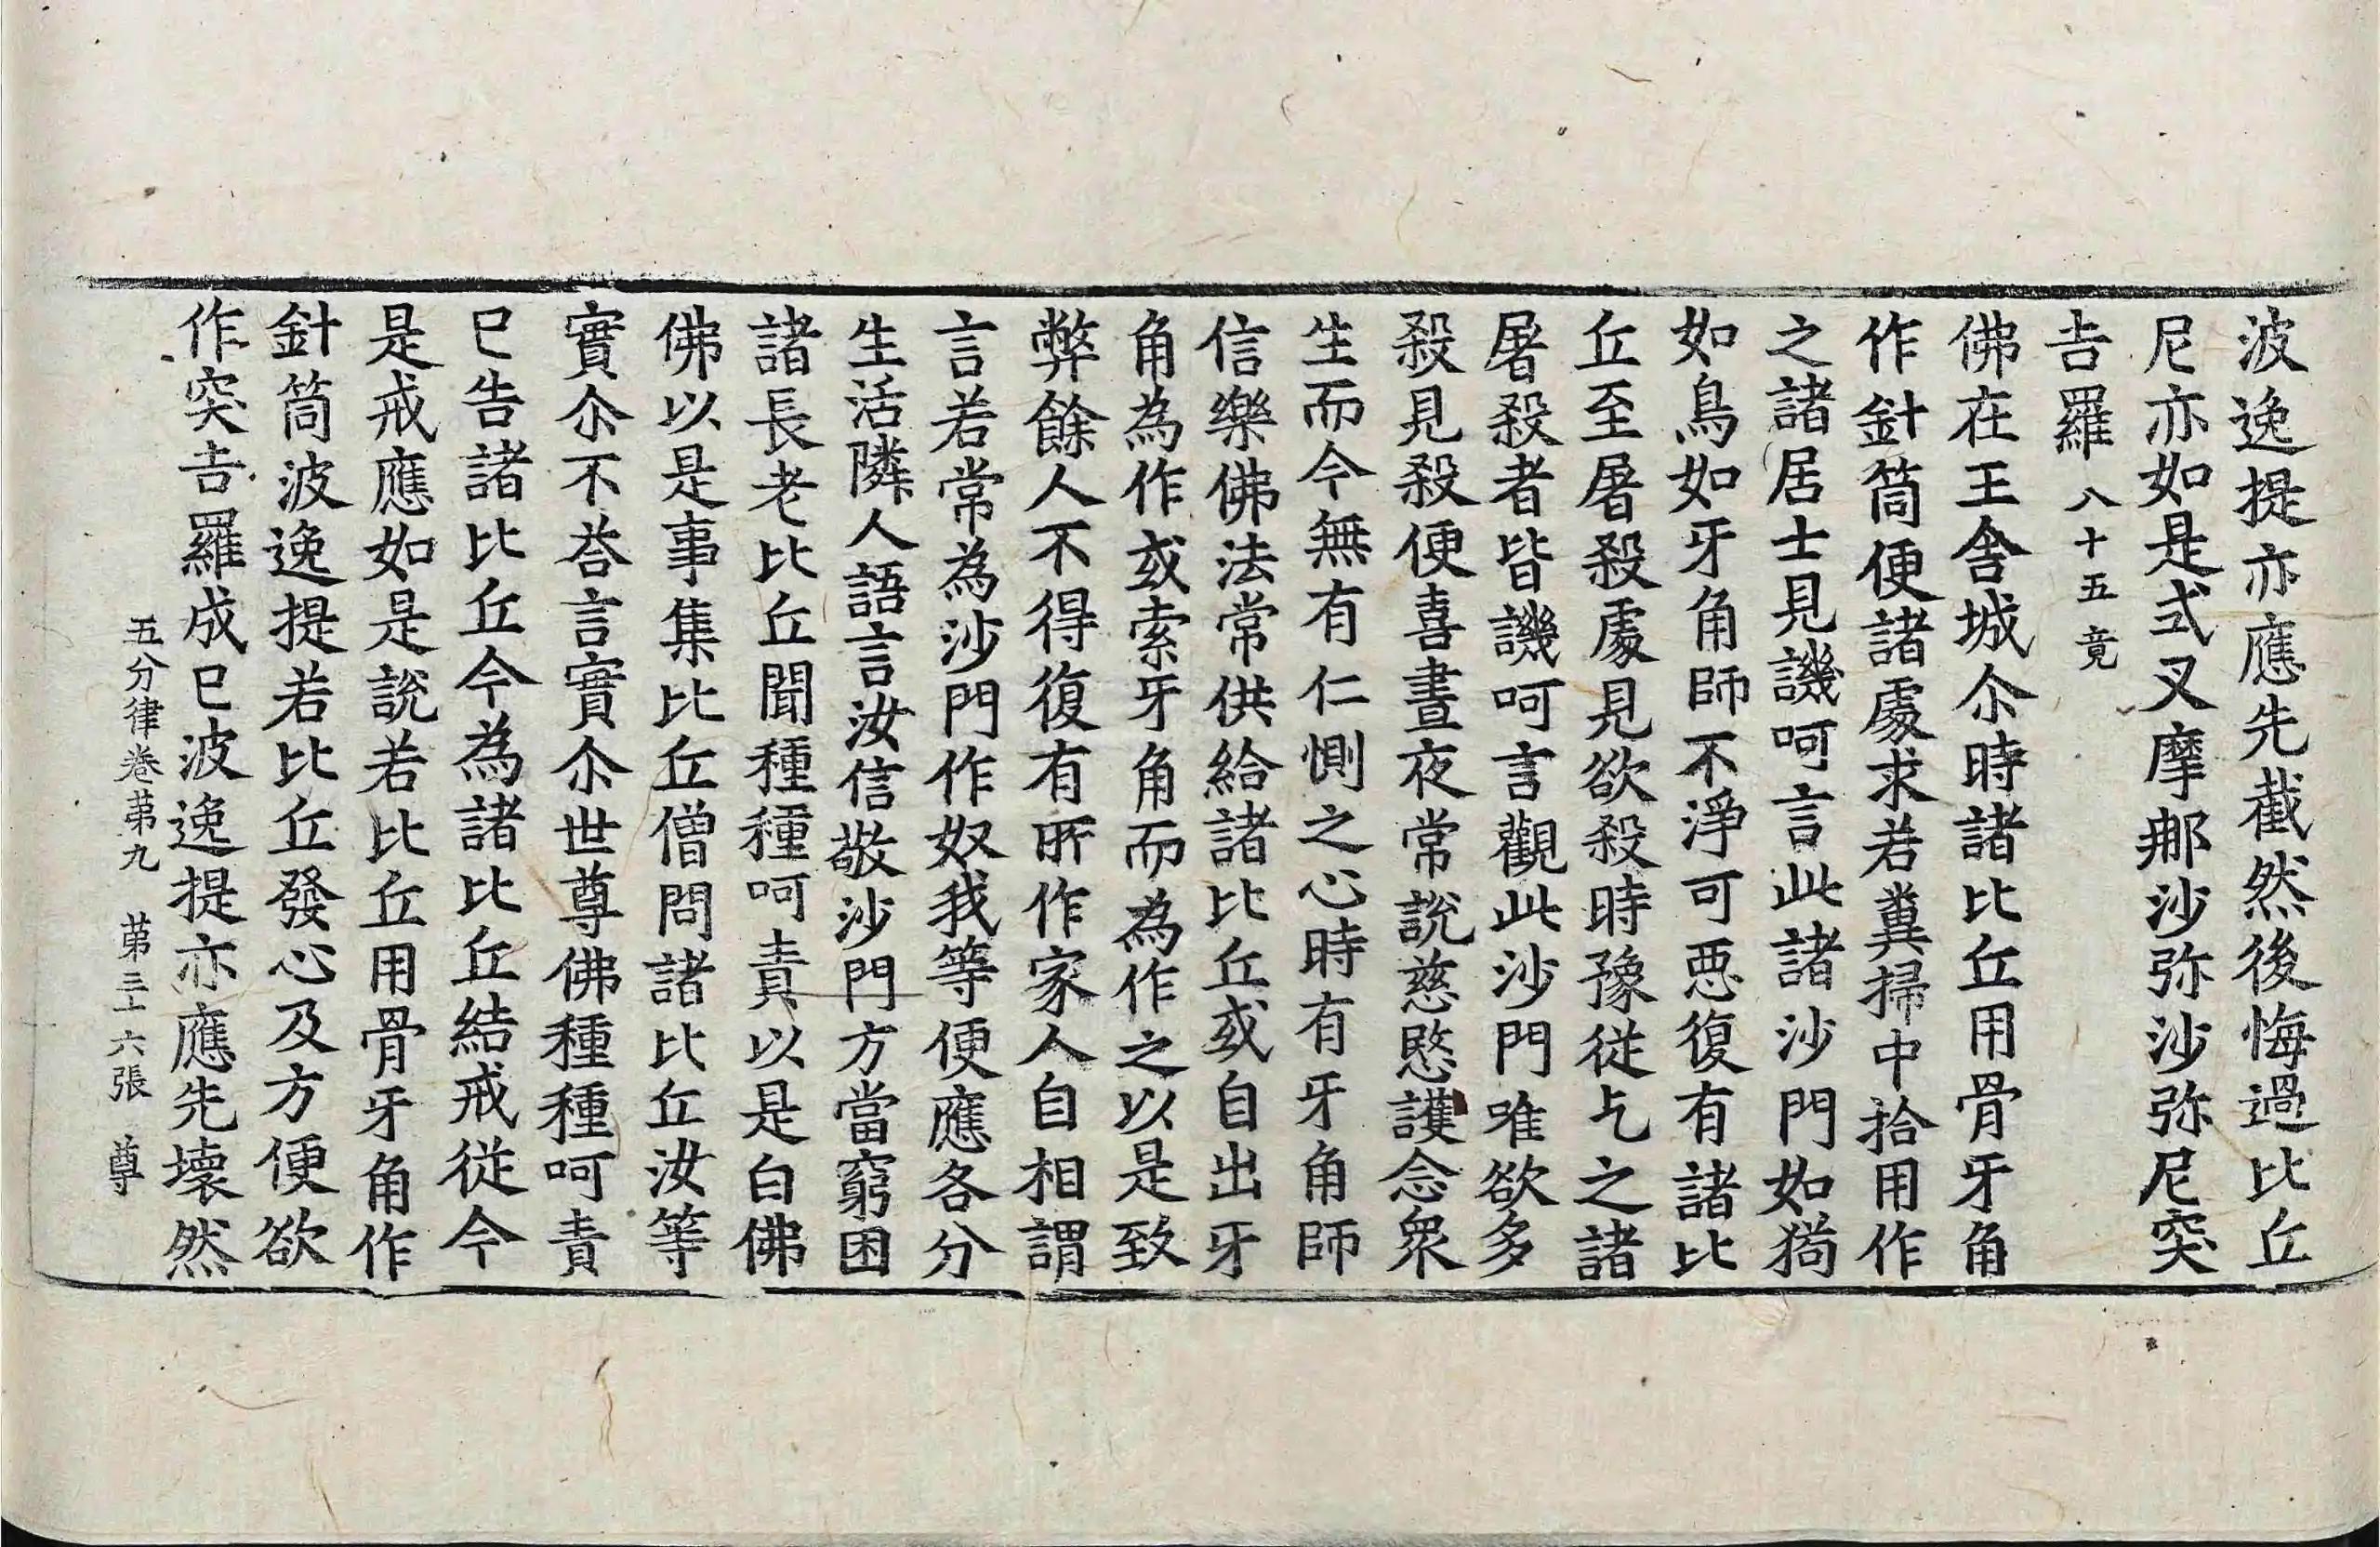 波逸提亦應先截然後悔過比丘
尼亦如是式叉摩那沙弥沙弥尼突
吉羅 八十五竟
佛在王舎城尒時諸比丘用骨牙角
作針筒便諸處求若糞掃中拾用作
之諸居士見譏呵言此諸沙門如猗
如鳥如牙角師不淨可惡復有諸比
丘至屠殺處見欲殺時豫從乞之諸
屠殺者皆譏呵言觀此沙門唯欲多
殺見殺便喜晝夜常說慈愍護念衆
生而今無有仁惻之心時有牙角師
信樂佛法常供給諸比丘或自出牙
角為作或索牙角而為作之以是致
弊餘人不得復有所作家人自相謂
言若常為沙門作奴我等便應各分
生活隣人語言汝信敬沙門方當窮困
諸長老比丘聞種種呵責以是白佛
佛以是事集比丘僧問諸比丘汝等
實尒不荅言實尒世尊佛種種呵責
已告諸比丘今為諸比丘結戒從今
是戒應如是說若比丘用骨牙角作
針筒波逸提若比丘發心及方便欲
作突吉羅成已波逸提亦應先壞然
五分律卷苐九 苐三十六張 尊